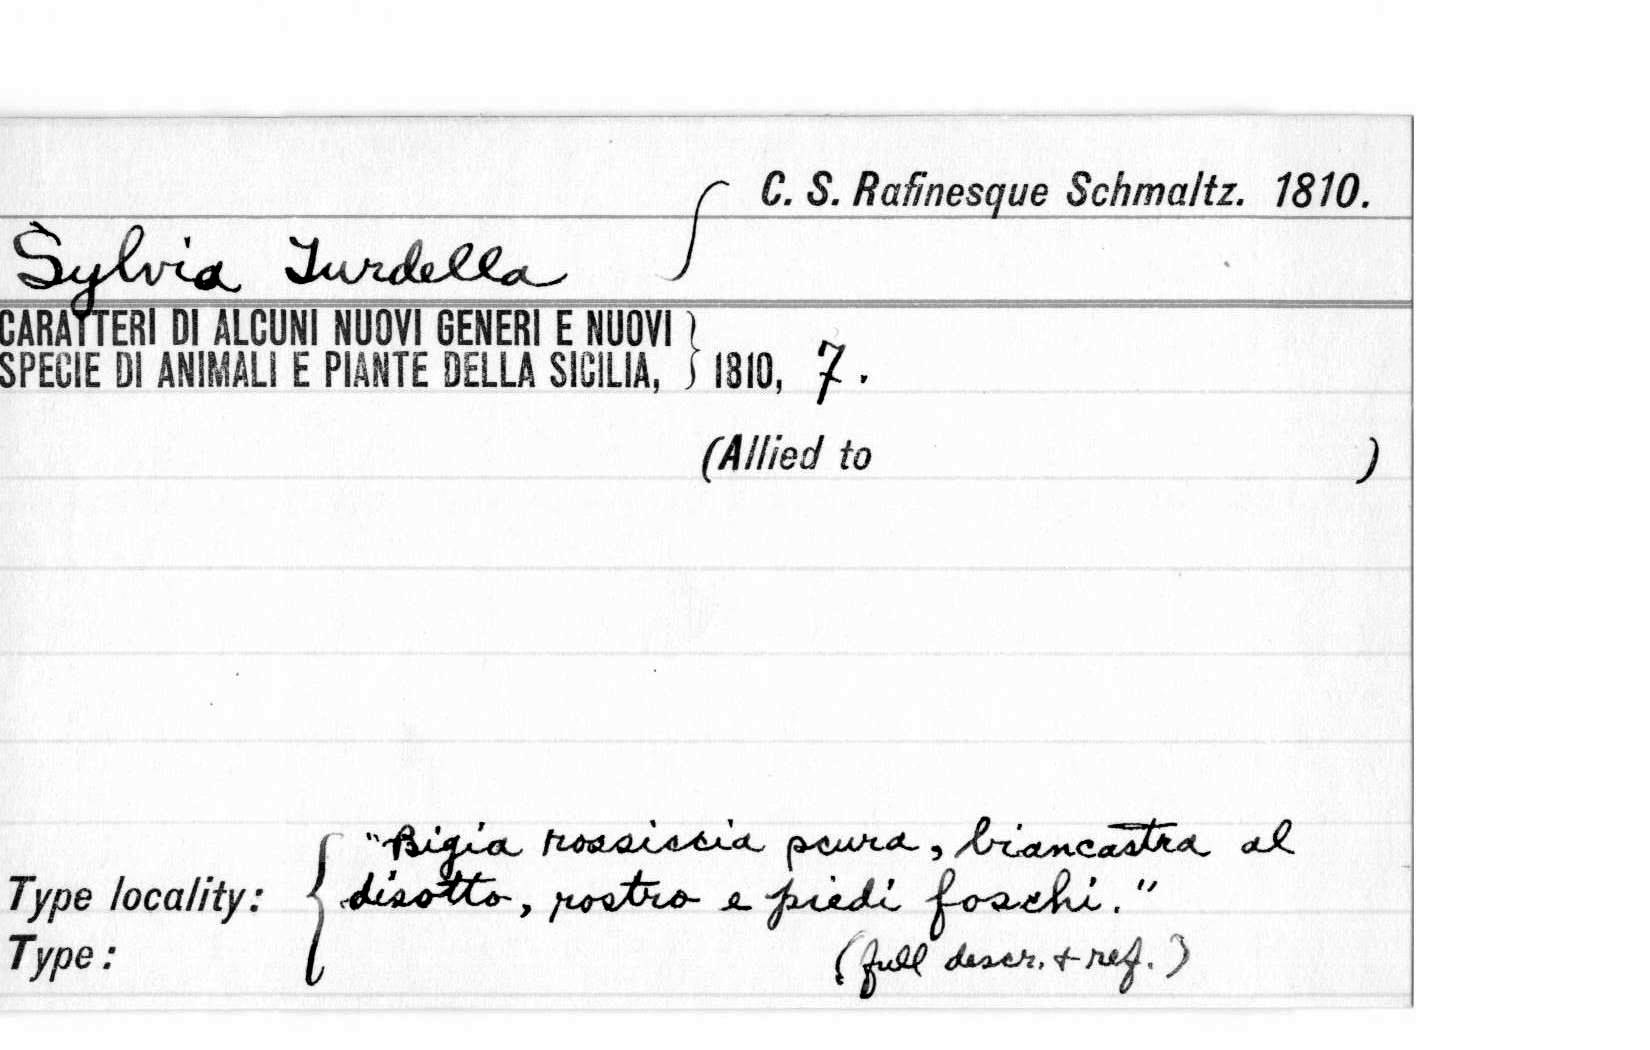 C. S. Rafinesque Schmaltz. 1810.
Sylvia Turdella
CARATTERI DI ALCUNI NUOVI GENERI E NUOVI
SPECIE DI ANIMALI E PIANTE DELLA SICILIA, 1810, 7.
(Allied to )
"Bigia rossiccia scura, biancastra al
Type locality: disotto, rostro e piedi foschi."
Type: (full descr. + ref.)